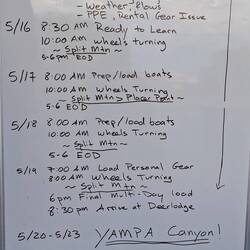 - Weather, Flows
- PPE, Rental Gear Issue
5/16 8:30 AM Ready to Learn
10:00 AM wheels Turning
~ Split Mtn ~
5-6pm EOD
5/17 8:00 AM Prep/load boats
10:00 AM Wheels Turning
~ Split Mtn > Placer Point ~
5-6 EOD
5/18 8:00 AM Prep/load boats
10:00 AM wheels Turning
~ Split Mtn ~
5-6 EOD
5/19 7:00 AM Load Personal Gear
8:00 AM Wheels Turning
~ Split Mtn ~
6pm Final Multi-Day load
8:30 pm Arrive at Deerlodge
5/20-5/23 YAMPA Canyon!